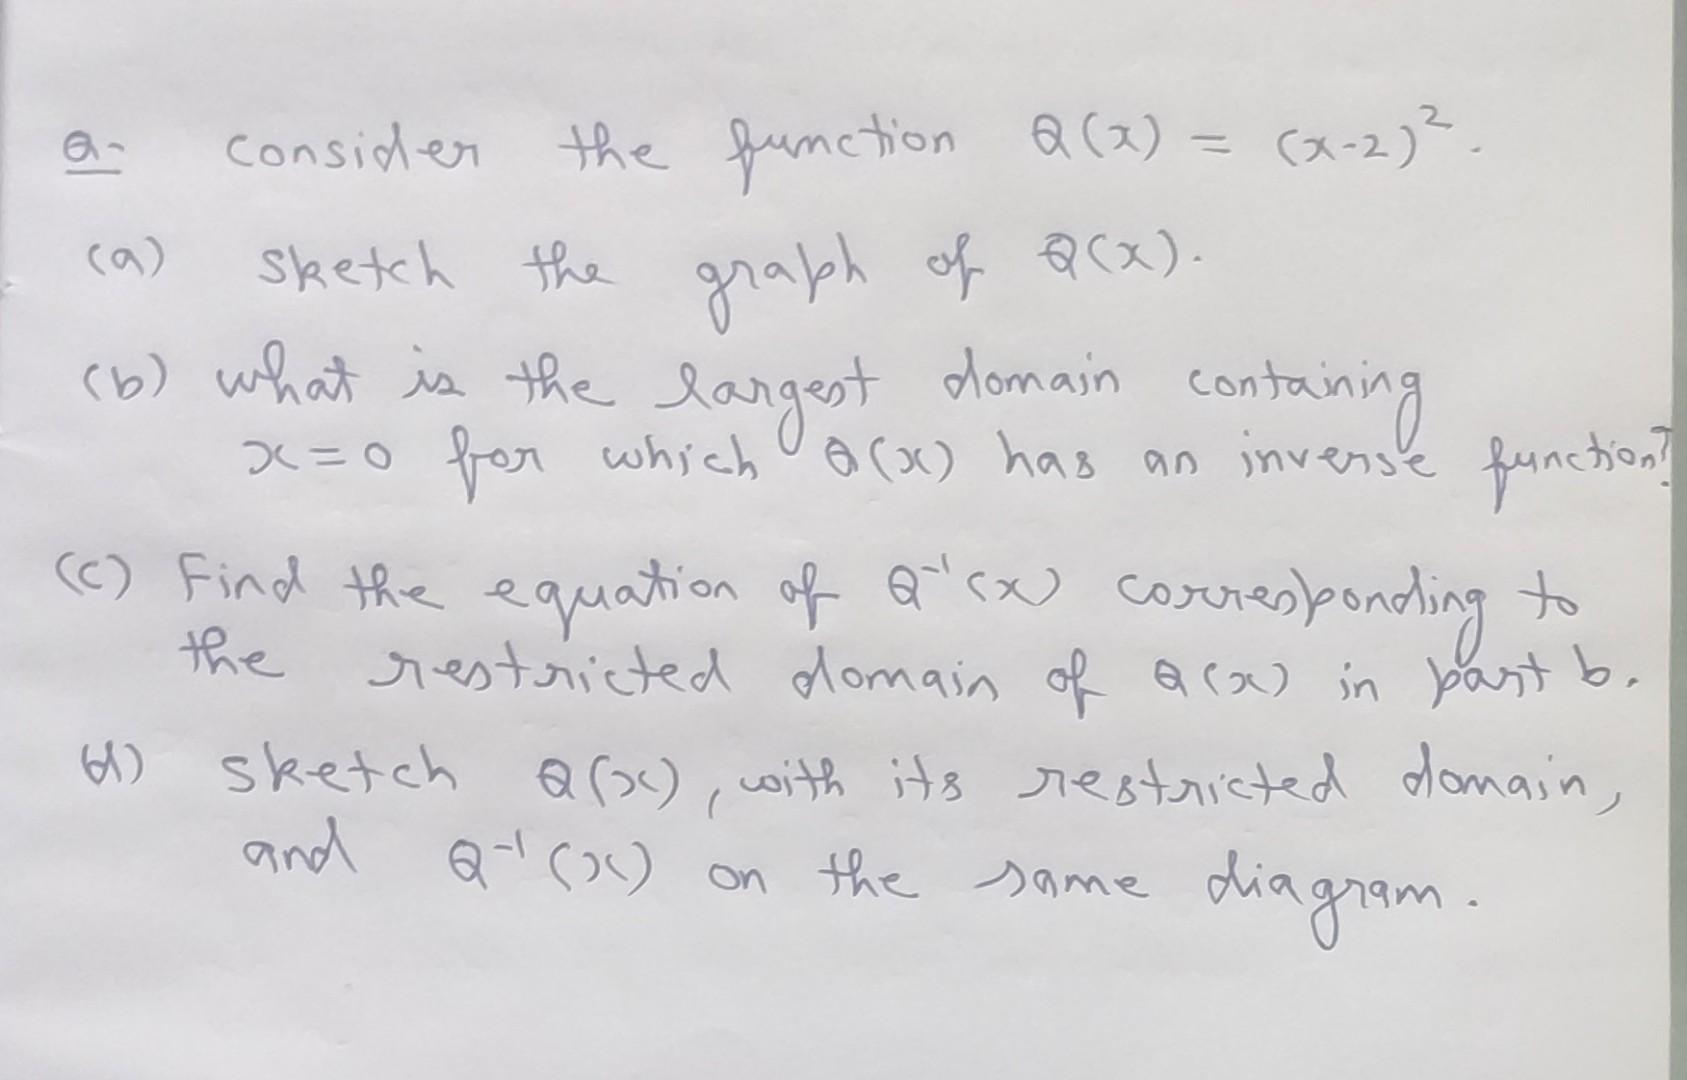 Q- consider the function Q(x) = (x-2)².
(a) sketch the graph of Q(x).
(b) what is the largest domain containing
x=0 for which Q(x) has an inverse function?
(c) Find the equation of Q⁻¹(x) corresponding to
the restricted domain of Q(x) in part b.
(d) sketch Q(x), with its restricted domain,
and Q⁻¹(x) on the same diagram.